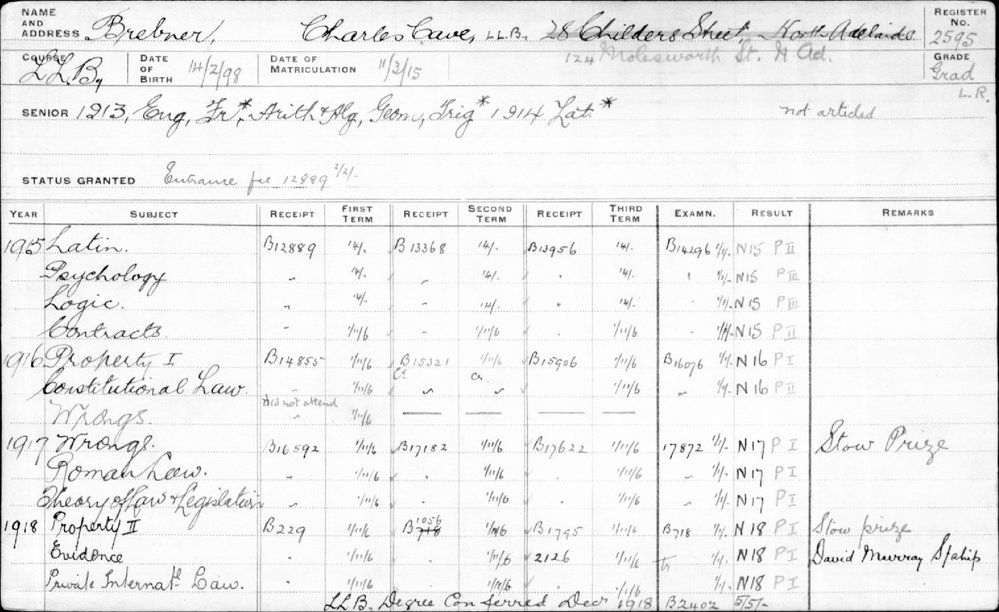 NAME AND ADDRESS Brebner, Charles Cave, LL.B., 28 Childers Street, North Adelaide. REGISTER No. 2595
124 Molesworth St. N Ad.
COURSE LL.B, DATE OF BIRTH 14/2/98 DATE OF MATRICULATION 11/3/15 GRADE Grad
L.R.
SENIOR 1913, Eng, Fr*, Arith & Alg, Geom, Trig* 1914 Lat.* not articled
STATUS GRANTED Entrance fee 12889 2/2/-
YEAR SUBJECT RECEIPT FIRST TERM RECEIPT SECOND TERM RECEIPT THIRD TERM EXAMN. RESULT REMARKS
1915 Latin. B12889 14/- B13368 14/- B13956 14/- B14296 1/1/- N15 P II
Psychology " 14/- " 14/- " 14/- " 1/1/- N15 P III
Logic. " 14/- " 14/- " 14/- " 1/1/- N15 P III
Contracts " 1/11/6 " 1/11/6 " 1/11/6 " 1/1/- N15 P II
1916 Property I B14855 1/11/6 B15321 1/11/6 B15906 1/11/6 B16076 1/1/- N16 P I
Constitutional Law. " 1/11/6 Cr " Cr " 1/11/6 " 1/1/- N16 P II
Did not attend
Wrongs. " 1/11/6 — — — —
1917 Wrongs. B16592 1/11/6 B17182 1/11/6 B17622 1/11/6 17872 1/1/- N17 P I Stow Prize
Roman Law. " 1/11/6 " 1/11/6 " 1/11/6 " 1/1/- N17 P I
Theory of Law & Legislation " 1/11/6 " 1/11/6 " 1/11/6 " 1/1/- N17 P I
1918 Property II B229 1/11/6 B718 1056 1/11/6 B1795 1/11/6 B718 1/1/- N18 P I Stow prize
Evidence " 1/11/6 " 1/11/6 2126 1/11/6 1/1/- N18 P I David Murray Sship
Private Internatl. Law. " 1/11/6 1/11/6 1/1/- N18 P I
LL.B. Degree Conferred Decr 1918 B2402 5/5/-